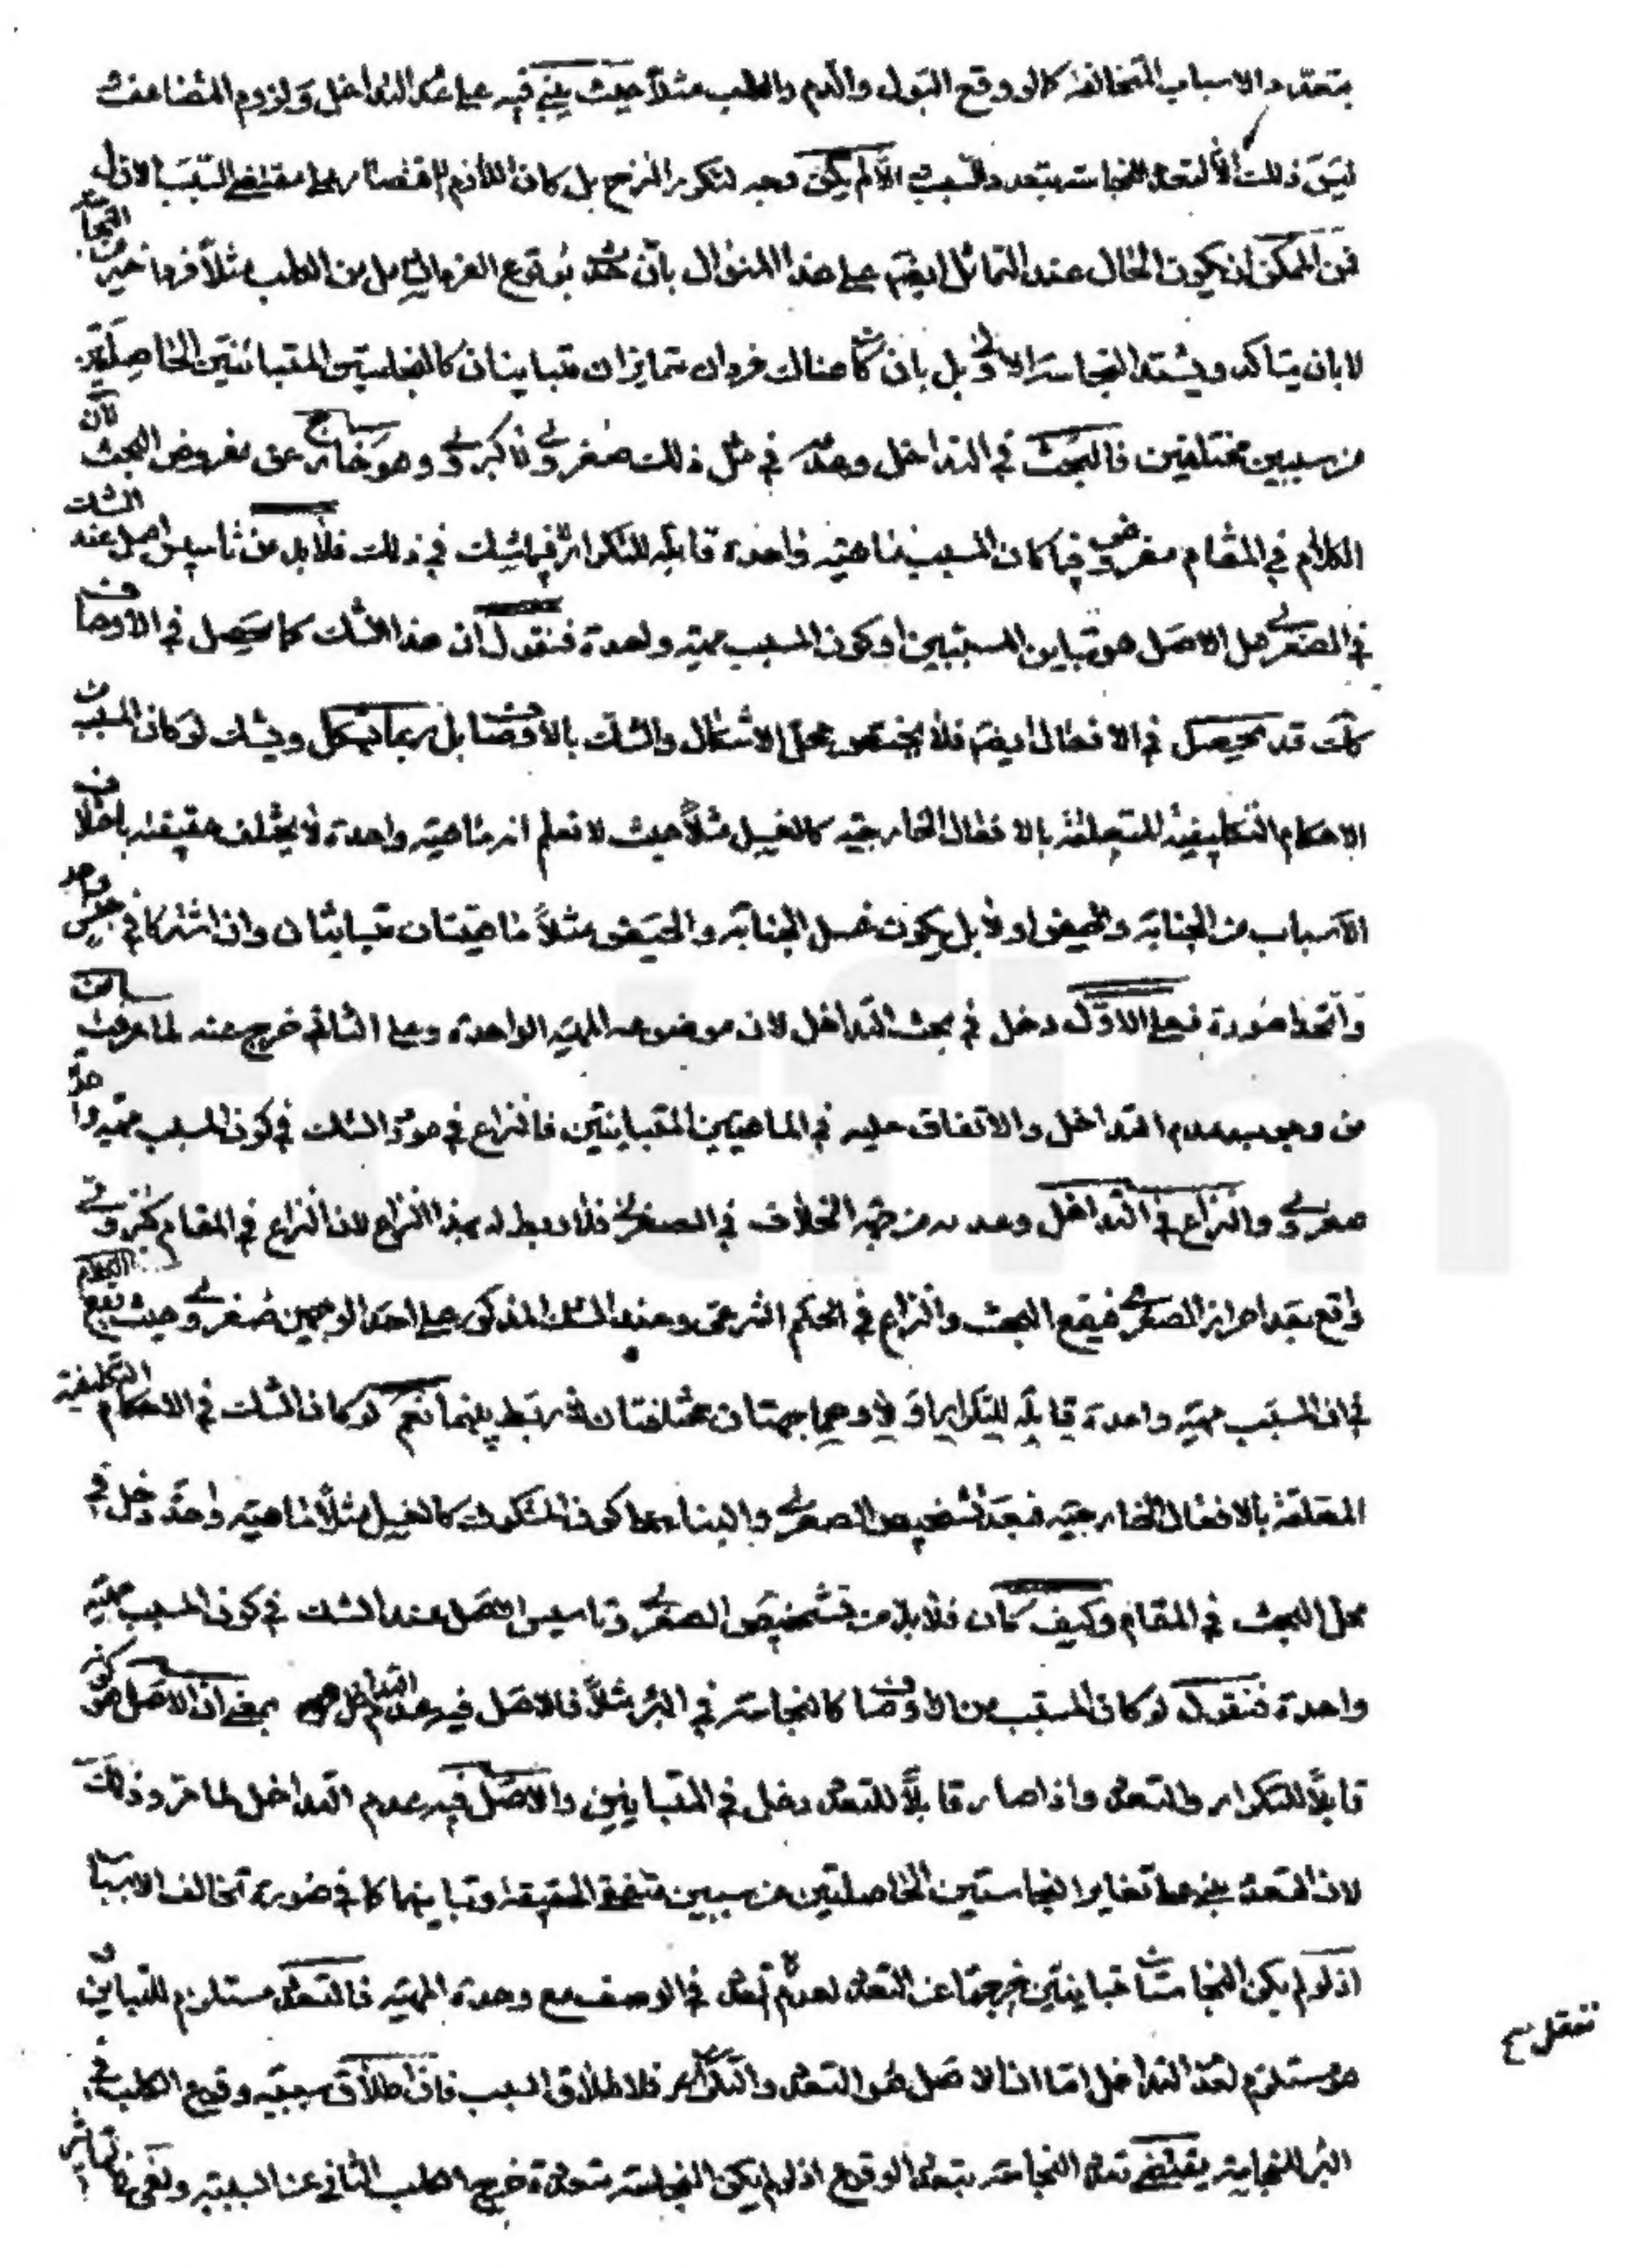 بتعدد الاسباب المتخالفة كما لو وقع البول والدم والكلب مثلاً حيث بنى فيه على عدم التداخل ولزوم المضاعفة
ليس ذلك الا لتعدد النجاسة بتعدد السبب والا لم يكن وجه لتكرر النزح بل كان اللازم الاقتصار على مقتضى السبب الاول
فمن الممكن ان يكون الحال عند التماثل ايضا على هذا المنوال بان بوقوع الفرد الاول من الكلب مثلاً فردا خر من النجاسة
لا بان يتاكد ويشتد النجاسة الاولى بل بان كان هناك فردان متمايزان متباينان كالنجاستين المتباينتين الحاصلتين
من سببين مختلفين فالبحث في التداخل وعدمه في مثل ذلك صغروى لا كبروى وهو خارج عن مفروض البحث لان
الكلام في المقام مفروض فيما كان المسبب ماهية واحدة قابلة للتكرار فيما شك في ذلك فلا بد من تاسيس اصل عند الشك
في الصغرى هل الاصل هو تباين المسببين او كون المسبب مهية واحدة فنقول ان هذا الشك كما يحصل في الاوصاف
كك قد يحصل في الافعال ايضا فلا يختص محل الاشكال والشك بالاوصاف بل ربما يشكل ويشك لو كان المسبب
الاحكام التكليفية المتعلقة بالافعال الخارجية كالغسل مثلاً حيث لا نعلم انه ماهية واحدة لا يختلف حقيقته باختلاف
الاسباب من الجنابة والحيض او لا بل يكون غسل الجنابة والحيض مثلاً ماهيتان متباينتان وان اشتركا في جنس واحد
واتحدا صورة فعلى الاول دخل في بحث التداخل لان موضوعه المهية الواحدة وعلى الثاني خرج عنه لما عرفت سابقا
من وجوب عدم التداخل والاتفاق عليه في الماهيتين المتباينتين فالنزاع في مورد الشك في كون المسبب مهية واحدة
صغروى والنزاع في التداخل وعدمه من جهة الخلاف في الصغرى فلا ربط له بهذا النزاع لان النزاع في المقام كبروى
واقع بعد احراز الصغرى فيقع البحث والنزاع في الحكم الشرعي وعند الشك المذكور على احد الوجهين صغروى حيث يقع الكلام
في ان المسبب مهية واحدة قابلة للتكرار او لا وهما جهتان مختلفتان لا ربط بينهما نعم لو كان الشك في الاحكام التكليفية
المتعلقة بالافعال الخارجية فبعد تشخيص الصغرى والبناء بما كون المشكوك كالغسل مثلاً ماهية واحدة دخل في
محل البحث في المقام وكيف كان فلا بد من تشخيص الصغرى وتاسيس الاصل عند الشك في كون المسبب مهية
واحدة فنقول لو كان المسبب من الاوصاف كالنجاسة في البئر مثلاً فالاصل فيه عدم التداخل بمعنى ان الاصل هو كونه
قابلاً للتكرار والتعدد واذا صار قابلاً للتعدد دخل في المتباينين والاصل فيه عدم التداخل لما مر وذلك
لان التعدد تغاير النجاستين الحاصلتين من سببين متفق الحقيقة وتباينهما كما في صورة تخالف الاسباب
اذ لو لم يكن النجاستان متباينتين خرجتا عن التعدد لعدم تعدد في الوصف مع وحدة المهية فالتعدد مستلزم للتباين
وهو مستلزم لعدم التداخل اما ان الاصل هو التعدد والتكرار فلاطلاق السبب فان اطلاق سببية وقوع الكلب في
البئر للنجاسة يقتضى تعدد النجاسة بتعدد الوقوع اذ لو لم يكن النجاسة متعددة خرج الكلب الثاني عن السببية ونفى تاثيره